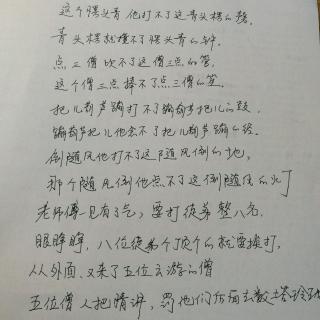 这个愣头青他打不了这青头楞的磬
青头楞就撞不了愣头青的钟
点三僧吹不了这僧三点的管
这个僧三点捧不了点三僧的笙
把儿葫芦蹦打不了蹦葫芦把儿的鼓
蹦葫芦把儿他念不了把儿葫芦蹦的经
倒随风他打不了这随风倒的地
那个随风倒他点不了这倒随风的灯
老师傅一见有了气，要打徒弟整八名
眼睁睁，八位徒弟个顶个的就要挨打
从外面又来了五位云游的僧
五位僧人把情讲，罚他们后面去数塔玲珑